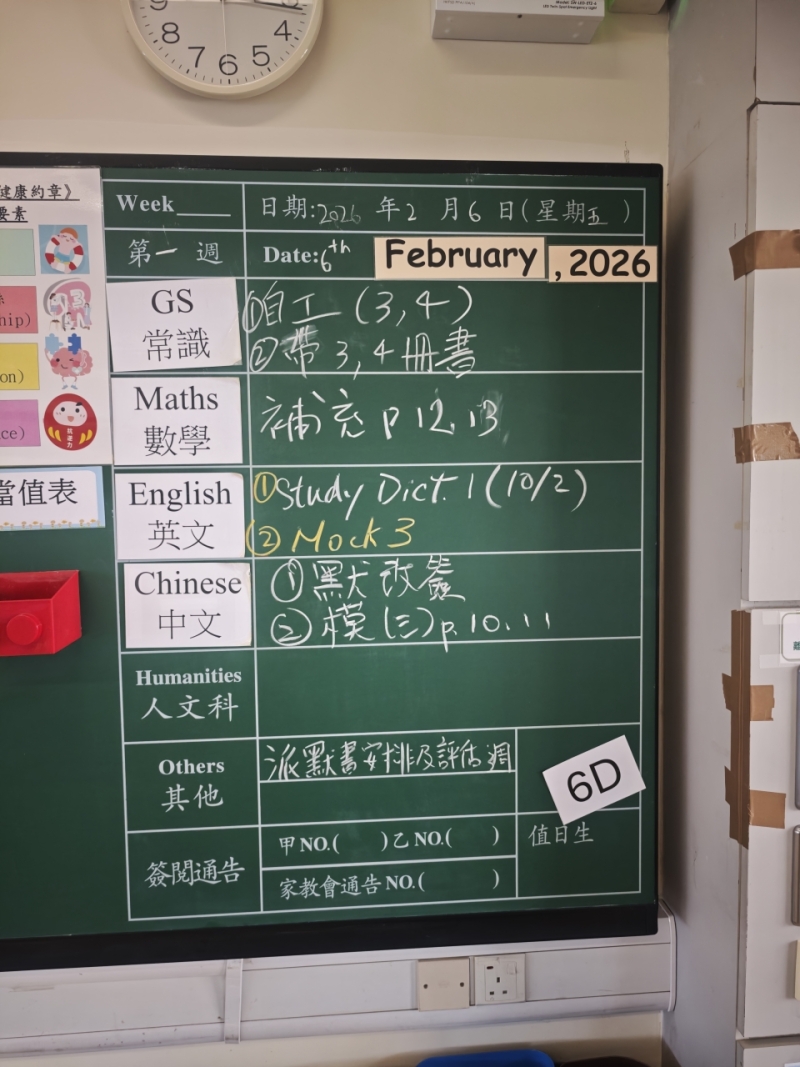 9
3
8
4
7
6
5
健康約章》
要素
hip)
on)
ce)
當值表
Week____ 日期:2026 年2 月6 日(星期五 )
第一週 Date:6th February , 2026
GS
常識
①自工(3,4)
②帶3,4冊書
Maths
數學
補充 p 12, 13
English
英文
①Study Dict. 1 (10/2)
②Mock 3
Chinese
中文
①默改簽
②模(三)p.10.11
Humanities
人文科
Others
其他
派默書安排及評估週
6D
簽閱通告
甲NO.( )乙NO.( )
家教會通告NO.( )
值日生